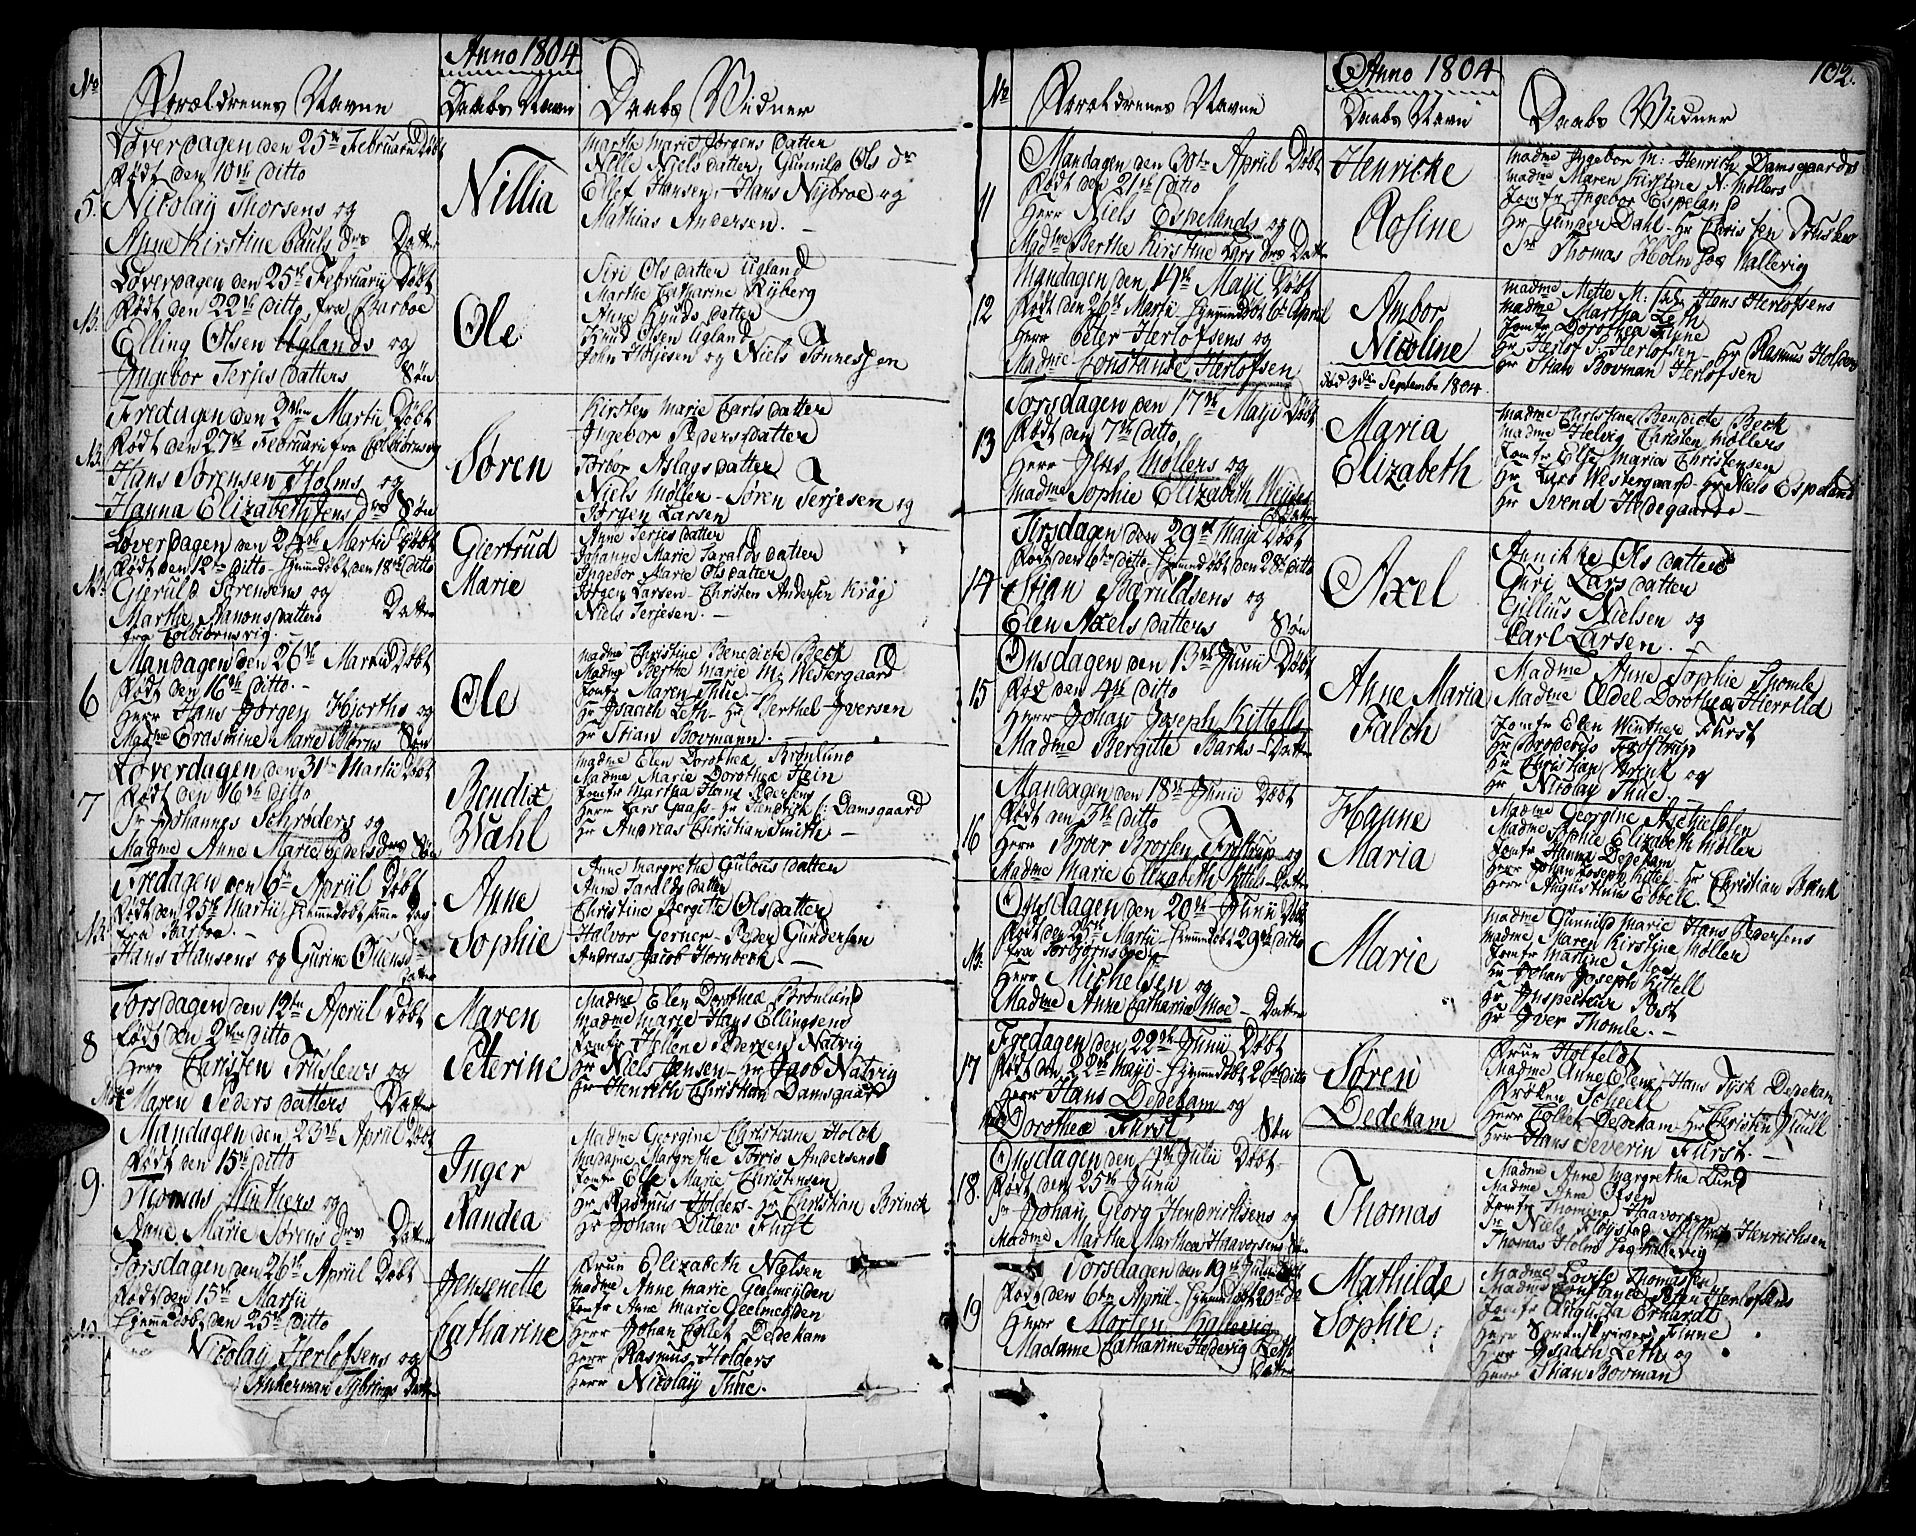 Anno 1804
No
Forældrenes Navne
Daabs Navn
Daabs Widner
Løverdagen den 25de Februarii Døbt
Født den 10de Ditto
5.
Nicolaÿ Thorsens og
Anne Kirstine Pauls Drs Datter
Nillia
Marthe Marie Jørgens Datter
Nille Niels Datter, Gunnild Ols Dr
Ellef Hansen, Hans Nÿbroe og
Mathias Andersen.
Løverdagen den 25de Februarii Døbt
Født den 22de Ditto fra Barboe
NB.
Elling Olsen Uglands og
Ingebor Terjes Datters Søn
Ole
Siri Ols Datter Ugland
Marthe Catharine Rÿberg
Anne Knuds Datter
Knud Olsen Ugland
John Holjesen og Niels Tønnessen
Fredagen den Martii Døbt
Født den 27de Februarii fra Colbiørnsvig
NB.
Hans Sørensen Holms og
Hanna Elizabeth Jens Drs Søn
Søren
Kirsten Marie Carls Datter
Ingebor Peders Datter
Torbor Aslags Datter
Niels Møller - Søren Terjesen og
Jørgen Larsen
Løverdagen den 24de Martii Døbt
Født den 12te Ditto - Hiemmedøbt den 18de Ditto
NB.
Gierulf Sørensens og
Marthe Aanons Datters Datter
fra Colbiørnsvig.
Giertrud
Marie
Anne Terjes Datter
Johanne Marie Taralds Datter
Ingebor Marie Ols Datter
Jørgen Larsen - Christen Andersen Krøg
Niels Terjesen.
Mandagen den 26de Martii Døbt
Født den 16de Ditto.
6
Herr Hans Jørgen Hjorths og
Madme Erasmine Marie Søn
Ole
Madme Christine Benedicte Beck
Madme Berthe Marie M: Westergaard
Jomfr Maren Thue
Hr Isaach Leth - Hr Berthel Iversen
Hr Stian Bovmann.
Løverdagen den 31te Martii Døbt
Født den 16de Ditto
7
Sr Johannes Schrøders og
Madme Anne Marie Peders Drs Søn
Bendix
Wahl
Madme Elen Dorothea Brønlund
Madme Marie Dorothea Hein
Jomfr Martha Hans Pedersens
Herr Lars Gaass - Hr Hendrich S: Damsgaard
Hr Andreas Christian Smith
Fredagen den 6te Apriil Døbt
Født den 25de Martii, Hiemmedøbt samme Dag
fra Barboe.
NB
Hans Hansens og Gurine Datter
Anne
Sophie
Anne Margrethe Datter
Anne Taralds Datter
Christine Bergitte Ols Datter
Halvor Gerner - Peder Gundersen
Andreas Jacob Hornbeck
Torsdagen den 12te Apriil Døbt
Født den 2den Ditto
8
Herr Christen Truslews og
Mdme Maren Peders Datters Datter
Maren
Peterine
Madme Elen Dorothea Brønlund
Madme Marie Hans Ellingsens
Jomfr Hellene Pedersen Natvig
Hr Niels Jensen - Hr Jacob Natvig
Hr Henrich Christian Damsgaard
Mandagen den 23de Apriil Døbt
Født den 15de Ditto
9.
Thomas Winthers og
Anne Marie Sørens Drs Datter
Inger
Xandea
Madme Georgine Christiane Holck
Madame Margrethe Torris Andersens
Jomfr Else Marie Christensen
Hr Rasmus Holders - Hr Christian Brinck
Hr Johan Ditlew Fürst
Torsdagen den 26de Apriil Døbt
Født den 15de Martii
Hiemmedøbt den 25de Ditto
Nicolaÿ Herlofsens og
Ankerman Datter
Jensenette
Catharine
Fruue Elizabeth Nielsen
Madme Anne Marie Geelmeÿden
Jomfr Anne Marie Geelmeÿden
Herr Johan Collet Dedekam
Herr Rasmus Holders
Herr Nicolaÿ Thue.
Anno 1804
102.
No
Forældrenes Navne
Daabs Navn
Daabs Widner
Mandagen den 30te Apriil Døbt
Født den 21de Ditto
11
Herr Niels Espelands og
Madme Berthe Kirstine Lars Drs Datter
Henricke
Rosine
Madme Ingebor M: Henrich Damsgaards
Madme Maren Kirstine N: Møllers
Jomfr Ingebor Espeland
Hr Gunder Dahl - Hr Christen Truslew
Sr Thomas Holm Wallevig
Mandagen den 14de Maji Døbt
12
Født den 26de Martii Hiemmedøbt 6te April
Herr Peter Herlofsens og
Madme Constance Herlofsen
Ambor
Nicoline
død 3die Septembr 1804.
Madme Mette M: Sal: Hans Herlofsens
Madme Martha Leth
Jomfr Dorothea Thue
Hr Herlof S: Herlofsen - Hr Rasmus Holders
Hr Stian Bovman Herlofsen
Torsdagen den 17de Maji Døbt
13
Født den 7de Ditto
Herr Jens Møllers og
Madme Sophie Elizabeth
Datter
Maria
Elizabeth
Madme Christine Benedicte Beck
Madme Helvig Christen Møllers
Jomfr Else Maria Christensen
Hr Lars Westergaard - Hr Niels Espeland
Hr Svend Hedegaard
Tirsdagen den 29de Maji Døbt
Født den 6te Ditto - Hiemmedøbt den 28de Ditto
14
Stian Bæruldsens og
Elen Axels Datters Søn
Axel
Annikke Ols Datter
Guri Lars Datter
Gullius Nielsen og
Carl Larsen.
Onsdagen den 13de Junii Døbt
15
Født den 4de Ditto
Herr Johan Joseph Kittells
Madme Bergitte Barths - Datter
Anne Maria
Falch
Madme Anne Sophie Thomle
Madme Ædel Dorothea Herrold
Jomfr Elen Winther Fürst
Hr Broderus Fristrup
Hr Christian Brink og
Hr Nicolaÿ Thue.
Mandagen den 18de Junii Døbt
Født den 7de Ditto
16
Herr Broer Brorsen Fristrup og
Madme Marie Elizabeth Kittels - Datter
Hanne
Maria
Madme Georgine Aschielsen
Madme Sophie Elizabeth Møller
Jomfr Hanna Dedekam
Herr Johan Joseph Kittel - Hr Christian Brink
Herr Augustinus Ebbell.
Onsdagen den 20de Junii Døbt
Født den 25de Martii - Hiemmedøbt 29de Ditto
NB.
Herr Michelsen og
Madme Anne Catharina Moe - Datter
Marie
Madme Gunnild Marie Hans Pedersens
Madme Maren Kirstine Møller
Jomfr Martine Moe
Hr Johan Joseph Kittell
Hr Inspecteur Post
Hr Iver Thomle.
Fredagen den 22de Junii Døbt
17
Født den 22de Maji - Hiemmedøbt 26de Ditto
Herr Hans Dedekam og
Madme Dorothea Fürst Søn
Søren
Dedekam
Fruue Holfeldt
Madme Anne Elene Hans Tÿsk Dedekam
Frøken Scheell
Herr Collet Dedekam Hr Christen Juell
Herr Hans Severin Fürst.
Onsdagen den 4de Julii Døbt
18.
Født den 25de Junii
Sr Johan Georg Hendrichsens og
Madme Marthe Marthea Haavorsens Søn
Thomas
Madme Anne Margrethe Lund
Madme Anne Olsen
Jomfr Thomine Haavorsen
Sr Niels Henrichsen
Thomas Holm
Torsdagen den 19de Julii Døbt
19
Født den 6te Apriil - Hiemmedøbt
Herr Morten Kallevig
Madame Catharine Hedevig Leth
Datter
Mathilde
Sophie
Madme Lovise Thomassen
Madme Constance Peter Herlofsens
Jomfr Augusta Erhardt
Herr Sorenskriver Thue
Herr Isaach Leth og
Herr Stian Bovman